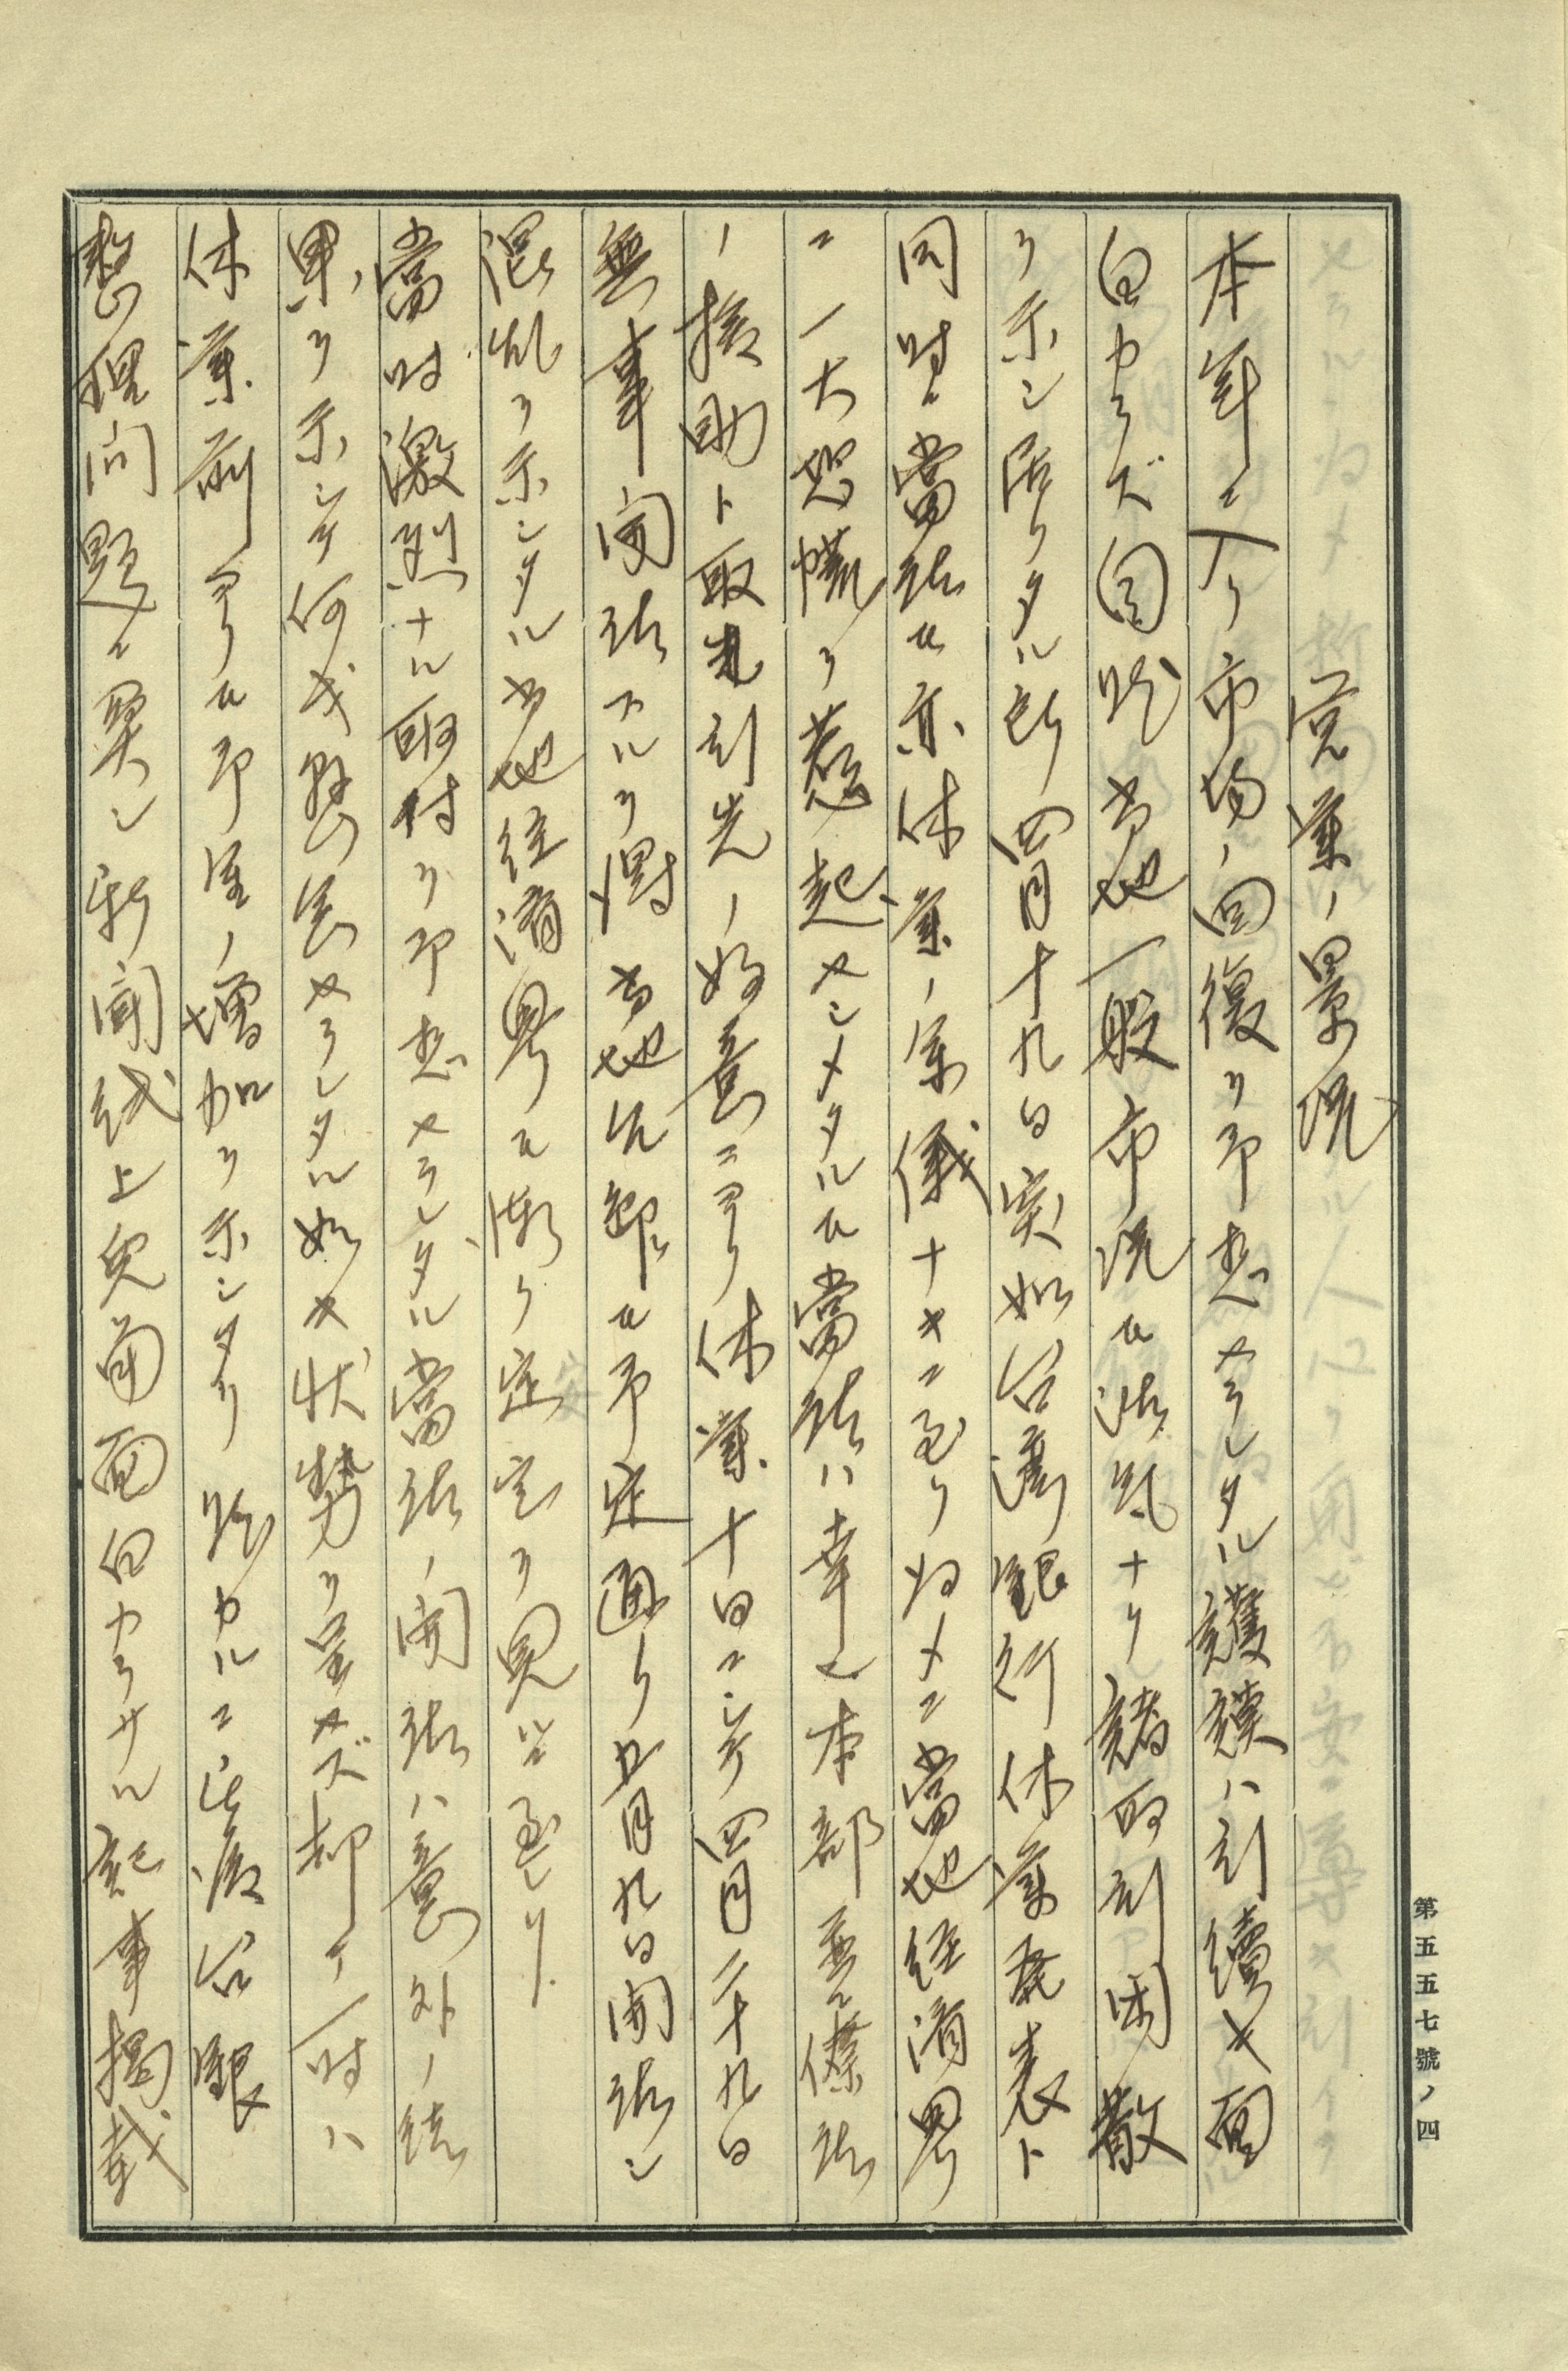 一、営業ノ景况
本年ニ入リ市場ノ回復ヲ予想セラレタル護謨ハ引續キ面
白カラズ自然当地一般市况モ沈衰ナリ諸取引閑散
ヲ示シ居リタル所四月十九日突如台湾銀行休業発表ト
同時ニ當店モ亦休業ノ余儀ナキニ至リ為メニ當地経済界
ニ一大恐慌ヲ惹起セシメタルモ當店ハ幸ニ本部並ニ僚店
ノ援助ト取引先ノ好意ニヨリ休業十日ニシテ四月二十九日
無事開店スルヲ得 当地台銀モ予定通リ五月九日開店シ
混乱ヲ示シタル当地経済界モ漸ク安定ヲ見ルニ至レリ
當時激烈ナル取付ヲ予想セラレタル當店ノ開店ハ意外ノ結
果ヲ示シテ何等懸念セラレタル如キ状勢ヲ呈セズ却テ一時ハ
休業前ヨリモ預金ノ増加ヲ示シタリ 然カルニ其後台銀
整理問題ニ関シ新聞紙上兎角面白カラサル記事掲載
第五五七號ノ四